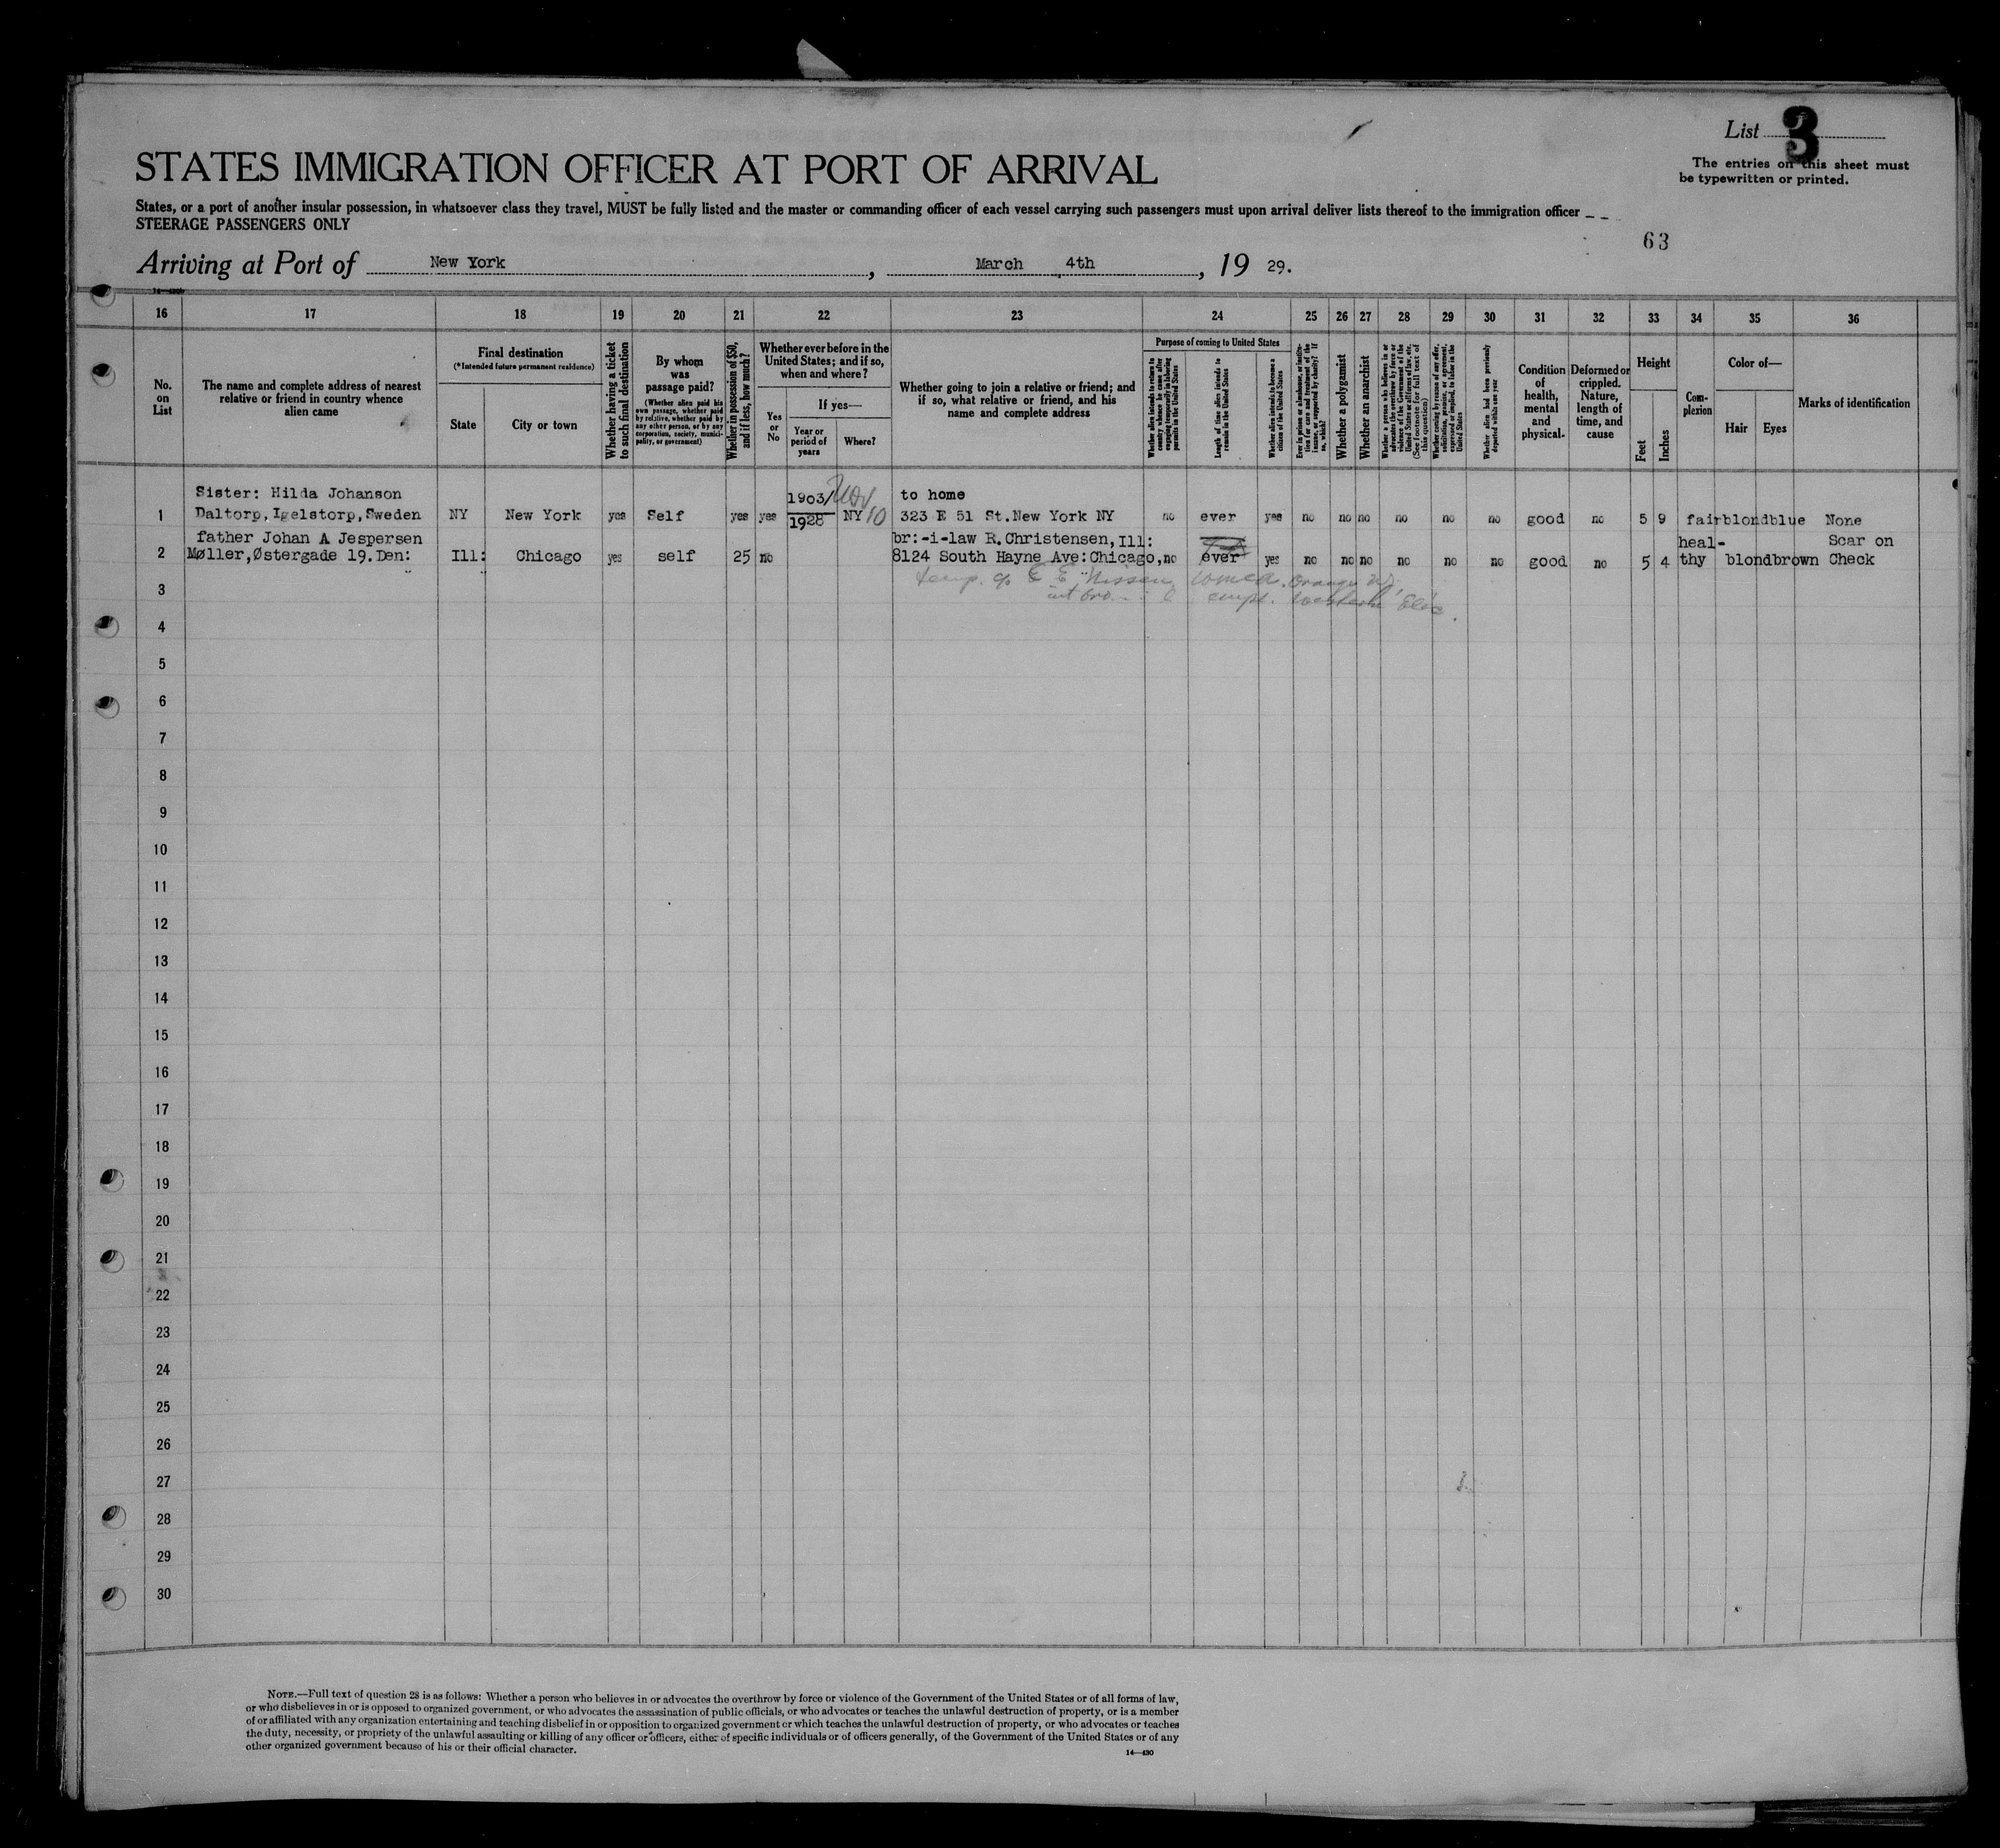 List 3
The entries on this sheet must
be typewritten or printed.
STATES IMMIGRATION OFFICER AT PORT OF ARRIVAL
States, or a port of another insular possession, in whatsoever class they travel, MUST be fully listed and the master or commanding officer of each vessel carrying such passengers must upon arrival deliver lists thereof to the immigration officer
STEERAGE PASSENGERS ONLY
63
Arriving at Port of New York, March 4th, 19 29.
16 17 18 19 20 21 22 23 24 25 26 27 28 29 30 31 32 33 34 35 36
No.
on
List
The name and complete address of nearest
relative or friend in country whence
alien came
Final destination
(*Intended future permanent residence)
State
City or town
Whether having a ticket
to such final destination
By whom
was
passage paid?
(Whether alien paid his
own passage, whether paid
by relative, whether paid by
any other person, or by any
corporation, society, munici-
pality, or government)
Whether in possession of $50,
and if less, how much?
Whether ever before in the
United States; and if so,
when and where?
Yes
or
No
If yes—
Year or
period of
years
Where?
Whether going to join a relative or friend; and
if so, what relative or friend, and his
name and complete address
Purpose of coming to United States
Whether alien intends to return to
country whence he came after
engaging temporarily in laboring
pursuits in the United States
Length of time alien intends to
remain in the United States
Whether alien intends to become a
citizen of the United States
Ever in prison or almshouse, or institu-
tion for care and treatment of the
insane, or supported by charity? If
so, which?
Whether a polygamist
Whether an anarchist
Whether a person who believes in or
advocates the overthrow by force or
violence of the Government of the
United States or all forms of law, etc.
(See footnote for full text of
this question)
Whether coming by reason of any offer,
solicitation, promise, or agreement,
expressed or implied, to labor in the
United States
Whether alien had been previously
deported within one year
Condition
of
health,
mental
and
physical.
Deformed or
crippled.
Nature,
length of
time, and
cause
Height
Feet
Inches
Com-
plexion
Color of—
Hair
Eyes
Marks of identification
Sister: Hilda Johanson 1903/ Nov to home
1 Daltorp, Igelstorp, Sweden NY New York yes Self yes yes 1928 NY 10 323 E 51 St. New York NY no ever yes no no no no no no good no 5 9 fair blond blue None
father Johan A Jespersen br:-i-law R. Christensen, Ill: heal- Scar on
2 Møller, Østergade 19. Den: Ill: Chicago yes self 25 no 8124 South Hayne Ave: Chicago, no ever yes no no no no no no good no 5 4 thy blond brown Check
temp. c/o E E Nissen Orange NJ
3 empl. Western Elec
4
5
6
7
8
9
10
11
12
13
14
15
16
17
18
19
20
21
22
23
24
25
26
27
28
29
30
NOTE.—Full text of question 28 is as follows: Whether a person who believes in or advocates the overthrow by force or violence of the Government of the United States or of all forms of law,
or who disbelieves in or is opposed to organized government, or who advocates the assassination of public officials, or who advocates or teaches the unlawful destruction of property, or is a member
of or affiliated with any organization entertaining and teaching disbelief in or opposition to organized government or which teaches the unlawful destruction of property, or who advocates or teaches
the duty, necessity, or propriety of the unlawful assaulting or killing of any officer or officers, either of specific individuals or of officers generally, of the Government of the United States or of any
other organized government because of his or their official character.
14—430